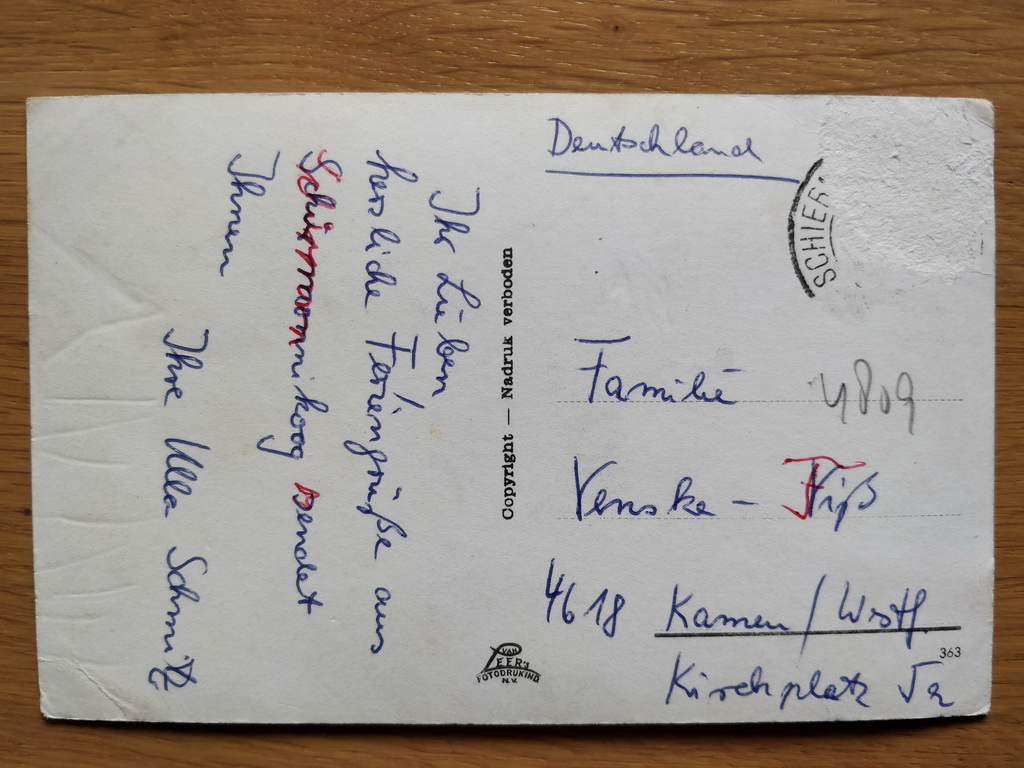 Ihr Lieben
herzliche Feriengrüße aus
Schirmonnikoog sendet
Ihnen
Ihre Ulla Schmitz
Copyright — Nadruk verboden
VAN
LEER'S
FOTODRUKIND
N.V.
Deutschland
SCHIER
Familie
4809
Venske - Fiß
4618 Kamen / Westf.
363
Kirchplatz